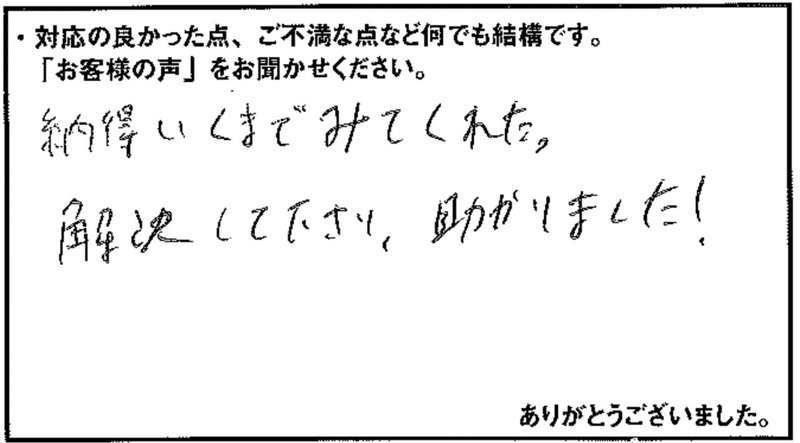 ・対応の良かった点、ご不満な点など何でも結構です。
「お客様の声」をお聞かせください。
納得いくまでみてくれた。
解決して下さり、助かりました!
ありがとうございました。